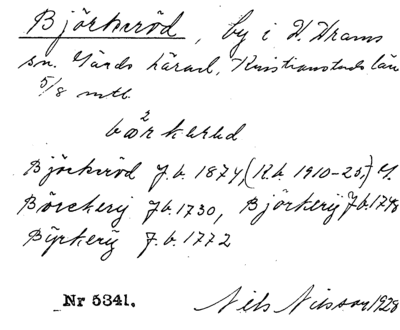 Björkeröd, by i V. Vrams
sn. Gärds härad, Kristianstads län
5/8 mtl.
Björkeröd J.b. 1874, (K.b. 1910-25,)
Börckerij J.b. 1730, Björkerij J.b. 1748
Byrkerij J.b. 1772
Nr 5341.
Nils Nilsson 1928